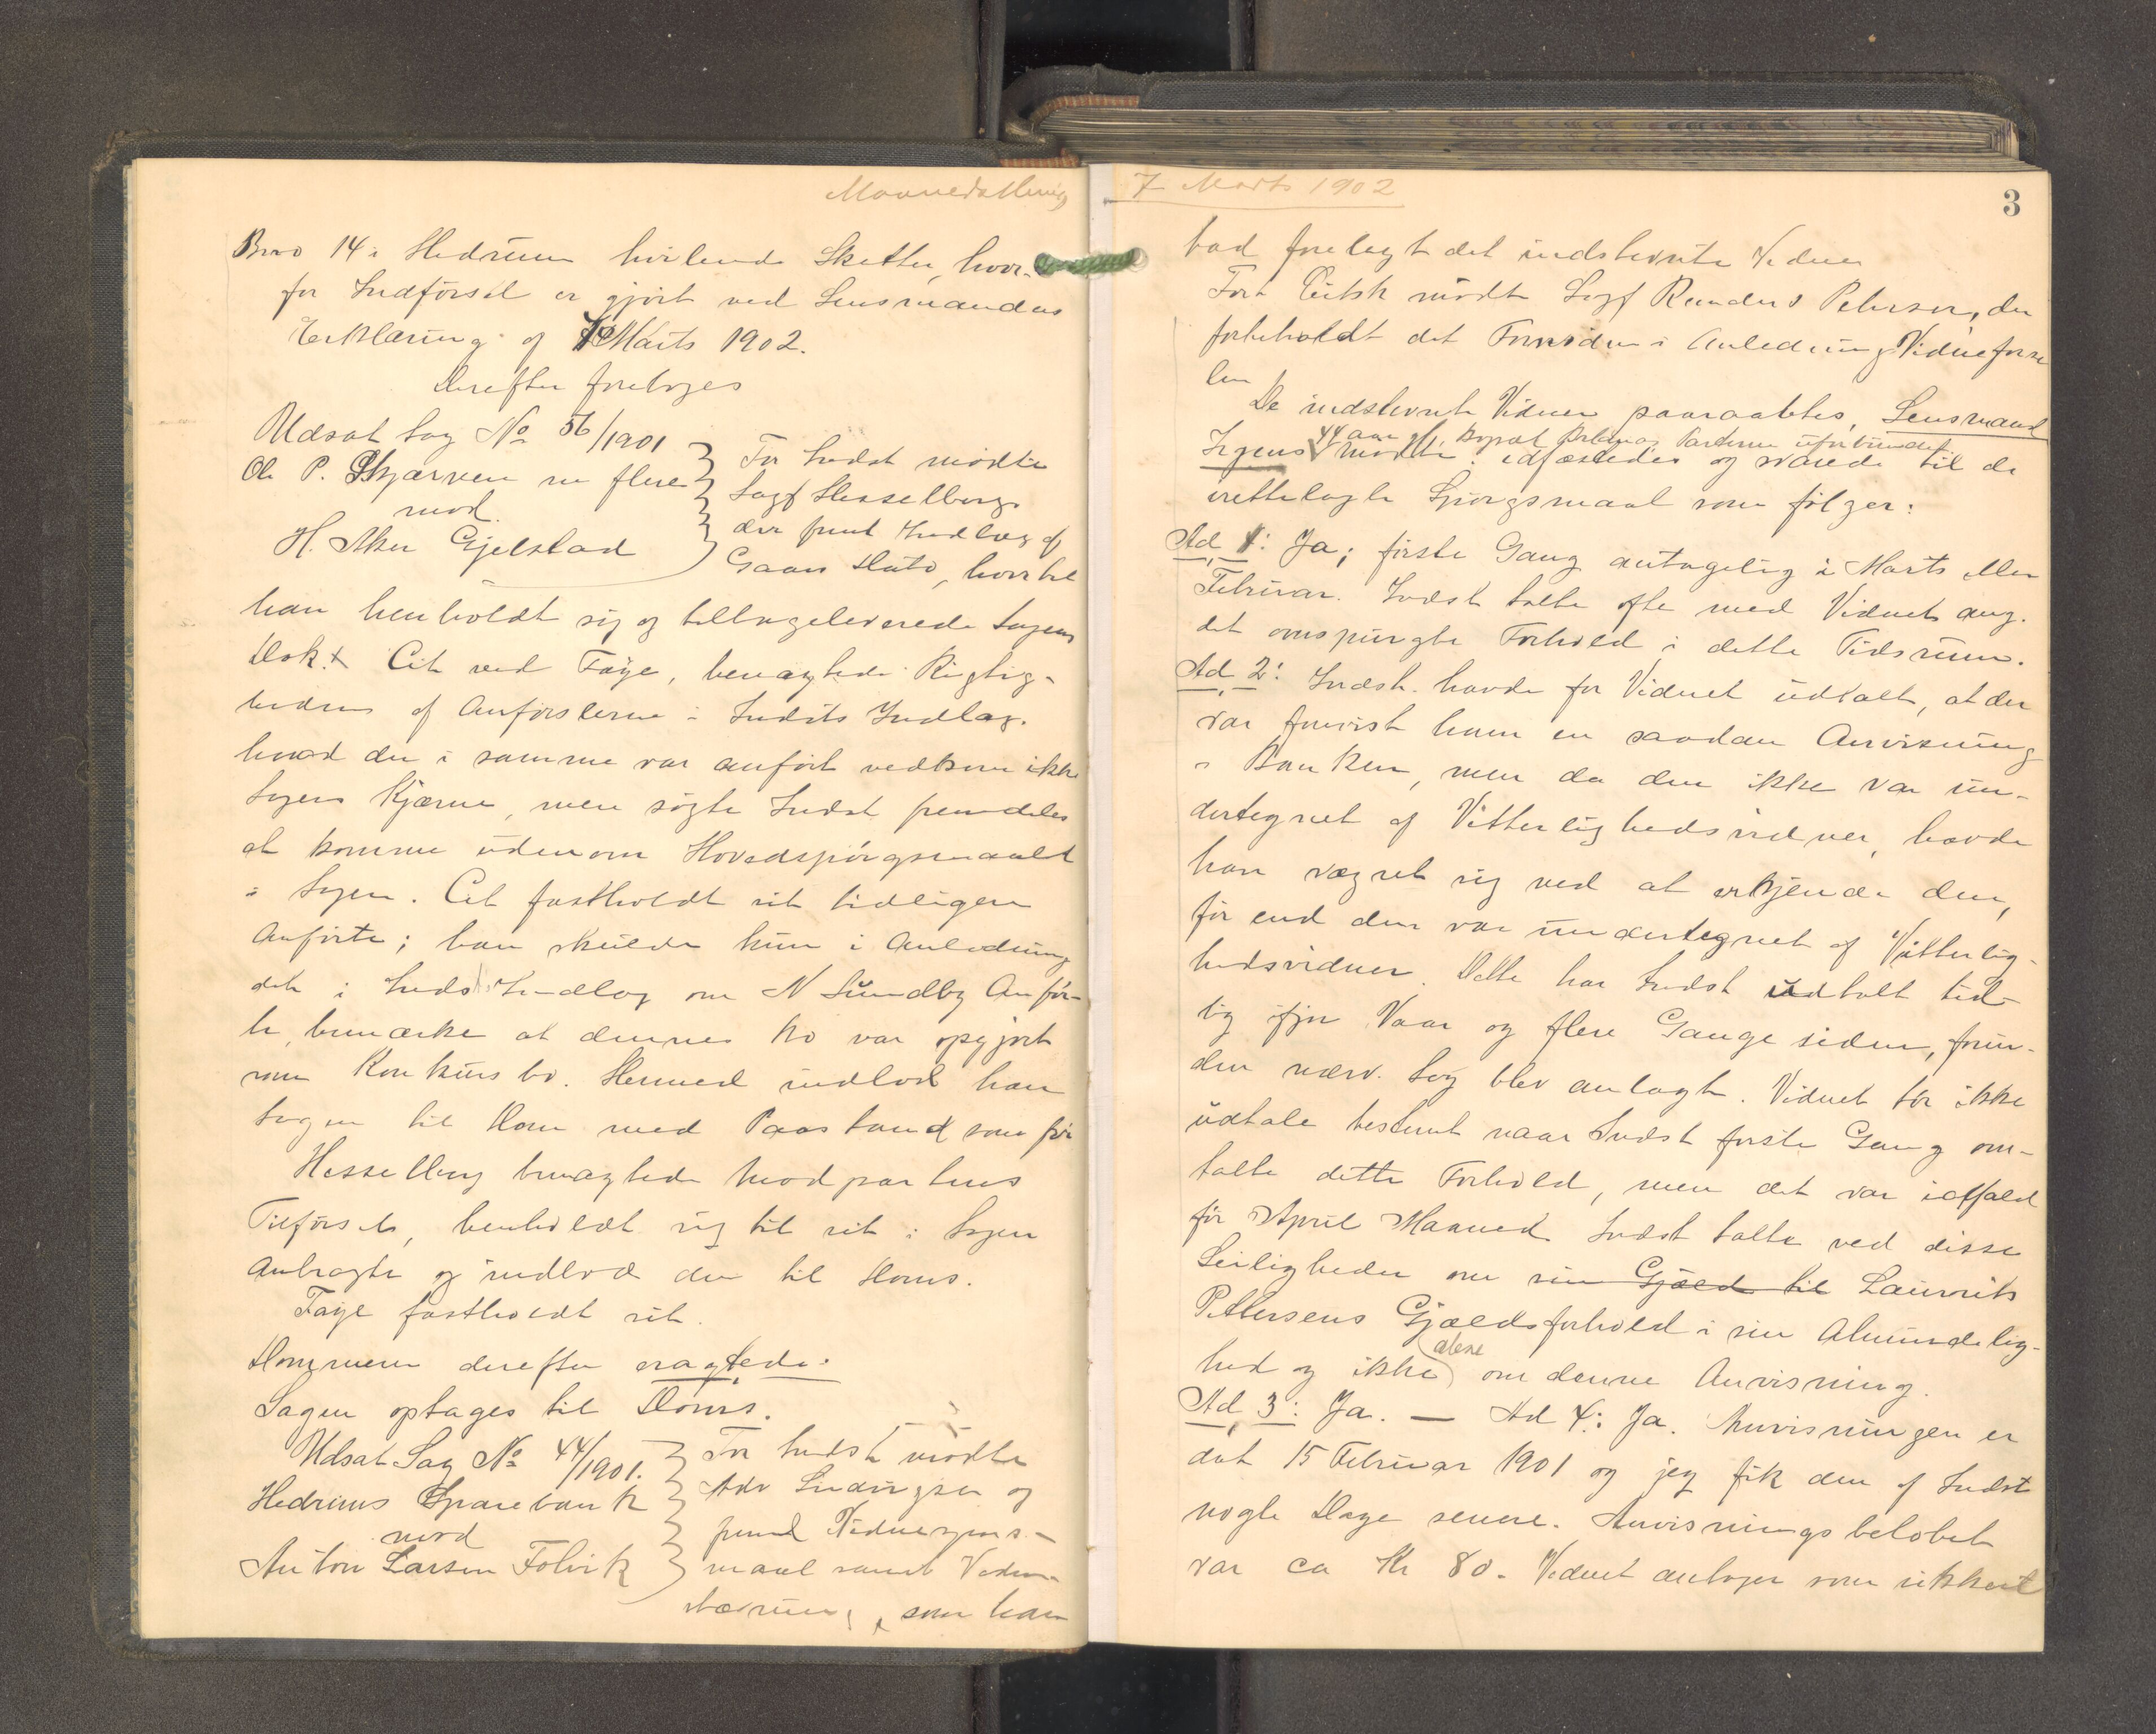 Maanedsthing
Brno 14 i Hedrum hvilende Skatter, hvor-
for Indførsel er gjort ved Lensmandens
Erklæring af Marts 1902.
Derefter foretoges
Udsat Sag No 56/1901
Ole P. Skjærven m flere
mod
H. Aker Gjelstad
For Indst mødte
Sagf Hesselberg
der freml Indlæg af
Gaars Dato, hvortil
han henholdt sig og tilbageleverede Sagens
Dok. Cit ved Faye, benægtede Rigtig-
heden af Anførslerne i Indsts Indlæg.
hvad der i samme var anført vedkom ikke
Sagens Kjærne, men søgte Indst fremdeles
at komme udenom Hovedspørgsmaalet
i Sagen. Cit fastholdt sit tidligere
Anførte; han skulde kun i Anledning
det i Indsts Indlæg om N Sundby Anfør-
te, bemærke at dennes Bo var opgjort
som Konkursbo. Hermed indlod han
Sagen til Dom med Paastand som før
Hesselberg benægtede Modpartens
Tilførsel, henholdt sig til sit i Sagen
Anbragte og indlod den til Doms.
Faye fastholdt sit.
Dommeren derefter eragtede:
Sagen optages til Doms.
Udsat Sag No 44/1901.
Hedrums Sparebank
mod
Anton Larsen Folvik
For Indst mødte
Adv Lindigsen og
freml Vidnespørs-
maal samt Vidne-
stævning, som han
7 Marts 1902
3
bad forelagt det indstevnte Vidner
For Citsk mødte Sagf Randers Pehrson, der
forbeholdt det Fornødne i Anledning Vidneførse
len
De indstevnte Vidner paaraabtes, Lensmand
44 aar gl, Parterne uforbunden
Jegens mødte. edfæstedes og svarede til de
irettelagte Spørgsmaal som følger:
Ad 1: Ja; første Gang antagelig i Marts eller
Februar. Indst talte ofte med Vidnet ang.
det omspurgte Forhold i dette Tidsrum.
Ad 2: Indst. havde for Vidnet udtalt, at der
var forevist ham en saadan Anvisning
i Banken, men da den ikke var un-
dertegnet af Vitterlighedsvidner, havde
han vægret sig ved at erkjende den,
før end den var undertegnet af Vitterlig-
hedsvidner. Dette har Indst udtalt tid-
lig ifjor Vaar og flere Gange siden, forin-
den nærv. Sag blev anlagt. Vidnet tør ikke
udtale bestemt naar Indst første Gang om-
talte dette Forhold, men det var ialfald
før April Maaned. Indst talte ved disse
Leiligheder om sin Gjæld til Laurits
Pettersens Gjældsforhold i sin Almindelig-
alene
hed og ikke om denne Anvisning.
Ad 3: Ja. — Ad 4: Ja. Anvisningen er
dat 15 Februar 1901 og jeg fik den af Indst
nogle Dage senere. Anvisningsbeløbet
var ca Kr 80. Vidnet antager som sikkert